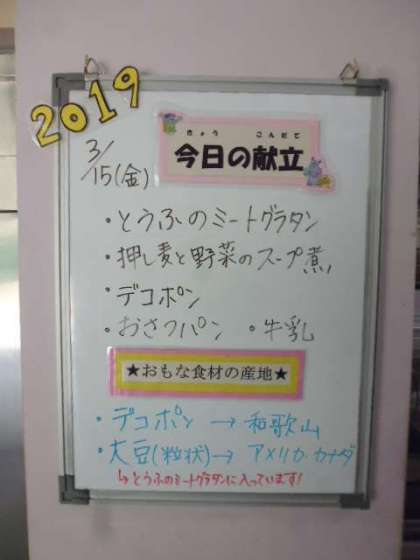 2019
3/15(金)
きょう こんだて
今日の献立
・とうふのミートグラタン
・押し麦と野菜のスープ煮
・デコポン
・おさつパン ・牛乳
★おもな食材の産地★
・デコポン → 和歌山
・大豆(粒状)→ アメリカ・カナダ
↳とうふのミートグラタンに入っています!